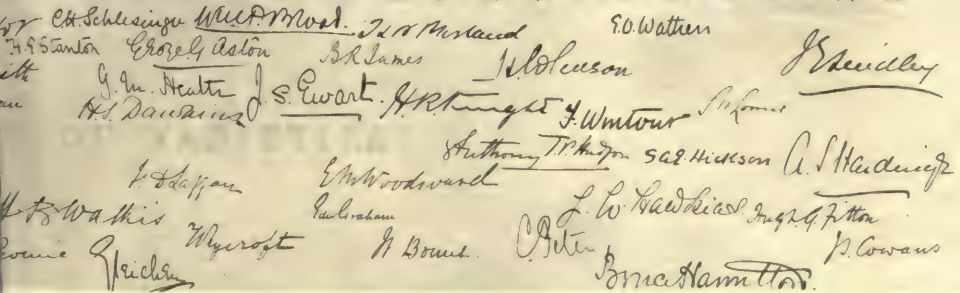 C.H. Schlesinger Wm. P. Blood. E.O. Wathen
H.E. Stanton George G. Aston B.R. James J.E. Lindley
G.M. Heath J.S. Ewart. H.R. Knight F. Wintour
H.S. Dawkins
Anthony T.P. Hudson S.A.E. Hickson A.S. Hardinge
F. D. Laffan E.M. Woodward
H. B. Wathis Ian Graham L.W. Hawkins Hugh G. Fitton
Wycroft W. Bonus C. Peter J. Cowans
Gleichen Bruce Hamilton.